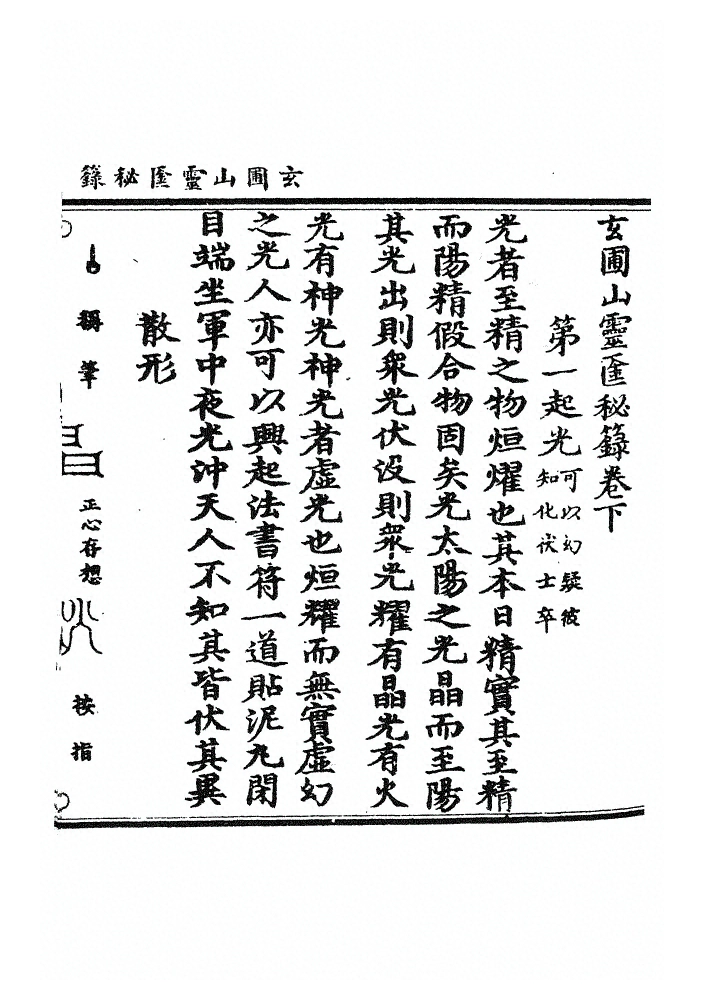 玄圃山靈匧秘籙
玄圃山靈匧秘籙卷下
第一起光可以幻疑彼
知化伏士卒
光者至精之物烜燿也其本日精實其至精
而陽精假合物固矣光太陽之光晶而至陽
其光出則衆光伏没則衆光耀有晶光有火
光有神光神光者虛光也烜耀而無實虛幻
之光人亦可以興起法書符一道貼泥丸閉
目端坐軍中夜光沖天人不知其皆伏其異
散形
稱筆
正心存想
按指